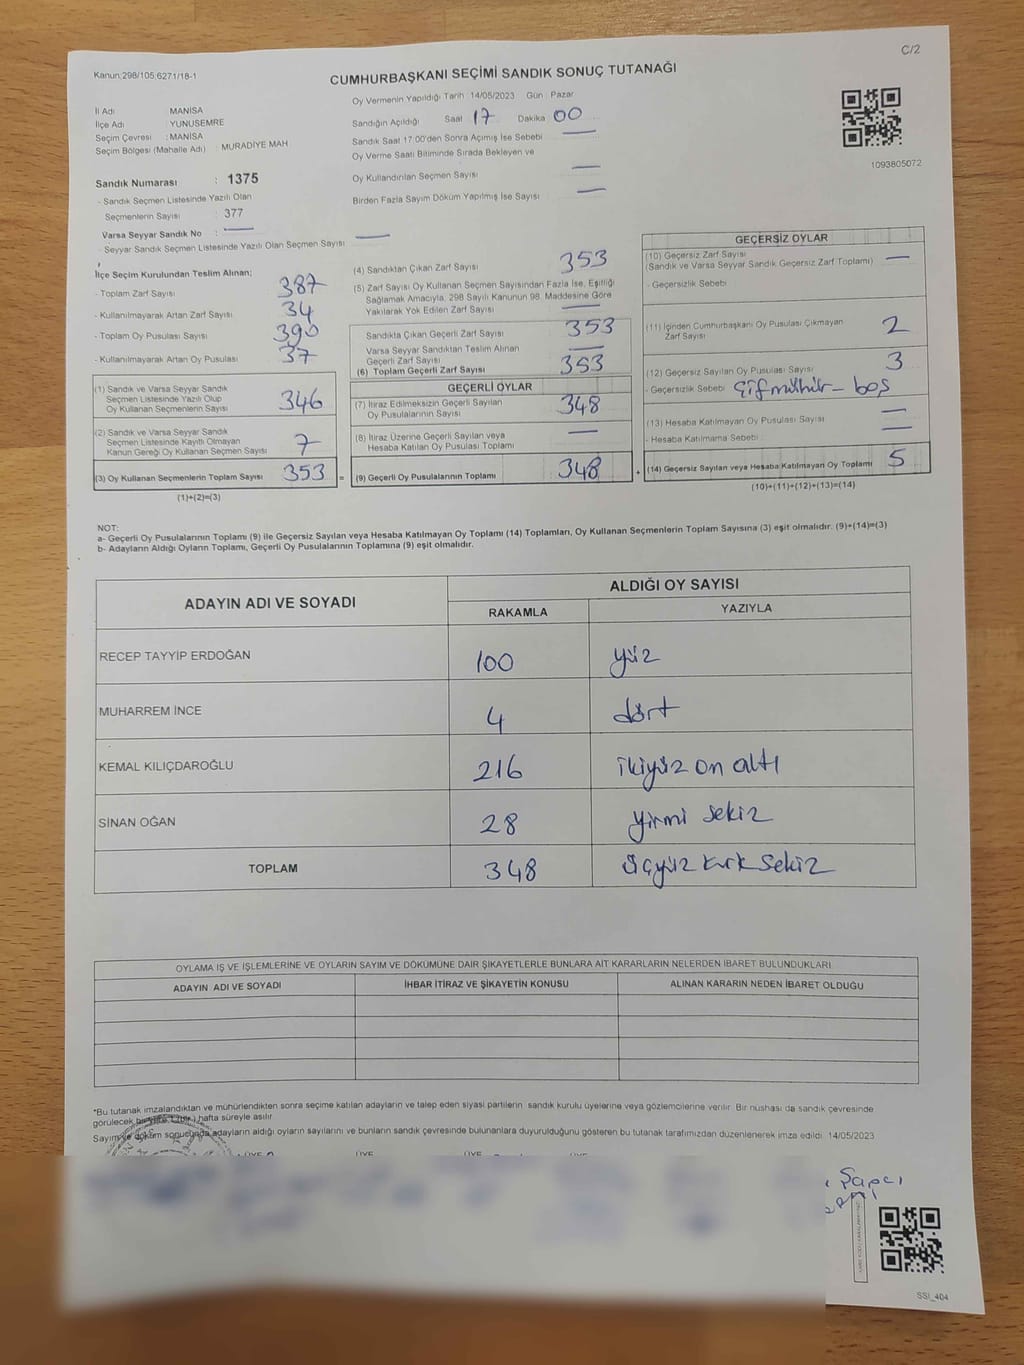 C/2
Kanun;298/105,6271/18-1
CUMHURBAŞKANI SEÇİMİ SANDIK SONUÇ TUTANAĞI
İl Adı : MANİSA
İlçe Adı : YUNUSEMRE
Seçim Çevresi : MANİSA
Seçim Bölgesi (Mahalle Adı) : MURADİYE MAH
Sandık Numarası : 1375
- Sandık Seçmen Listesinde Yazılı Olan
Seçmenlerin Sayısı : 377
Varsa Seyyar Sandık No : —
- Seyyar Sandık Seçmen Listesinde Yazılı Olan Seçmen Sayısı : —
Oy Vermenin Yapıldığı Tarih : 14/05/2023 Gün : Pazar
Sandığın Açıldığı Saat 17 Dakika 00
Sandık Saat 17:00'den Sonra Açımış İse Sebebi —
Oy Verme Saati Bitiminde Sırada Bekleyen ve
Oy Kullandırılan Seçmen Sayısı —
Birden Fazla Sayım Döküm Yapılmış İse Sayısı —
1093805072
İlçe Seçim Kurulundan Teslim Alınan;
- Toplam Zarf Sayısı 387
- Kullanılmayarak Artan Zarf Sayısı 34
- Toplam Oy Pusulası Sayısı 390
- Kullanılmayarak Artan Oy Pusulası 37
(1) Sandık ve Varsa Seyyar Sandık
Seçmen Listesinde Yazılı Olup
Oy Kullanan Seçmenlerin Sayısı 346
(2) Sandık ve Varsa Seyyar Sandık
Seçmen Listesinde Kayıtlı Olmayan
Kanun Gereği Oy Kullanan Seçmen Sayısı 7
(3) Oy Kullanan Seçmenlerin Toplam Sayısı 353 =
(1)+(2)=(3)
(4) Sandıktan Çıkan Zarf Sayısı 353
(5) Zarf Sayısı Oy Kullanan Seçmen Sayısından Fazla İse, Eşitliği
Sağlamak Amacıyla, 298 Sayılı Kanunun 98. Maddesine Göre
Yakılarak Yok Edilen Zarf Sayısı —
Sandıkta Çıkan Geçerli Zarf Sayısı 353
Varsa Seyyar Sandıktan Teslim Alınan
Geçerli Zarf Sayısı —
(6) Toplam Geçerli Zarf Sayısı 353
GEÇERLİ OYLAR
(7) İtiraz Edilmeksizin Geçerli Sayılan
Oy Pusulalarının Sayısı 348
(8) İtiraz Üzerine Geçerli Sayılan veya
Hesaba Katılan Oy Pusulası Toplamı —
(9) Geçerli Oy Pusulalarının Toplamı 348 +
GEÇERSİZ OYLAR
(10) Geçersiz Zarf Sayısı
(Sandık ve Varsa Seyyar Sandık Geçersiz Zarf Toplamı) —
- Geçersizlik Sebebi
(11) İçinden Cumhurbaşkanı Oy Pusulası Çıkmayan
Zarf Sayısı 2
(12) Geçersiz Sayılan Oy Pusulası Sayısı 3
- Geçersizlik Sebebi çifmühür- boş
(13) Hesaba Katılmayan Oy Pusulası Sayısı —
- Hesaba Katılmama Sebebi : —
(14) Geçersiz Sayılan veya Hesaba Katılmayan Oy Toplamı 5
(10)+(11)+(12)+(13)=(14)
NOT:
a- Geçerli Oy Pusulalarının Toplamı (9) ile Geçersiz Sayılan veya Hesaba Katılmayan Oy Toplamı (14) Toplamları, Oy Kullanan Seçmenlerin Toplam Sayısına (3) eşit olmalıdır. (9)+(14)=(3)
b- Adayların Aldığı Oyların Toplamı, Geçerli Oy Pusulalarının Toplamına (9) eşit olmalıdır.
ADAYIN ADI VE SOYADI ALDIĞI OY SAYISI
RAKAMLA YAZIYLA
RECEP TAYYİP ERDOĞAN 100 yüz
MUHARREM İNCE 4 dört
KEMAL KILIÇDAROĞLU 216 ikiyüz on altı
SİNAN OĞAN 28 yirmi sekiz
TOPLAM 348 üçyüz kırk sekiz
OYLAMA İŞ VE İŞLEMLERİNE VE OYLARIN SAYIM VE DÖKÜMÜNE DAİR ŞİKAYETLERLE BUNLARA AİT KARARLARIN NELERDEN İBARET BULUNDUKLARI
ADAYIN ADI VE SOYADI İHBAR İTİRAZ VE ŞİKAYETİN KONUSU ALINAN KARARIN NEDEN İBARET OLDUĞU
*Bu tutanak imzalandıktan ve mühürlendikten sonra seçime katılan adayların ve talep eden siyasi partilerin sandık kurulu üyelerine veya gözlemcilerine verilir. Bir nüshası da sandık çevresinde
görülecek bir yere (bir) hafta süreyle asılır
Sayım ve döküm sonucunda adayların aldığı oyların sayılarını ve bunların sandık çevresinde bulunanlara duyurulduğunu gösteren bu tutanak tarafımızdan düzenlenerek imza edildi. 14/05/2023
ÜYE ÜYE ÜYE ÜYE
Şapcı
SSİ_404